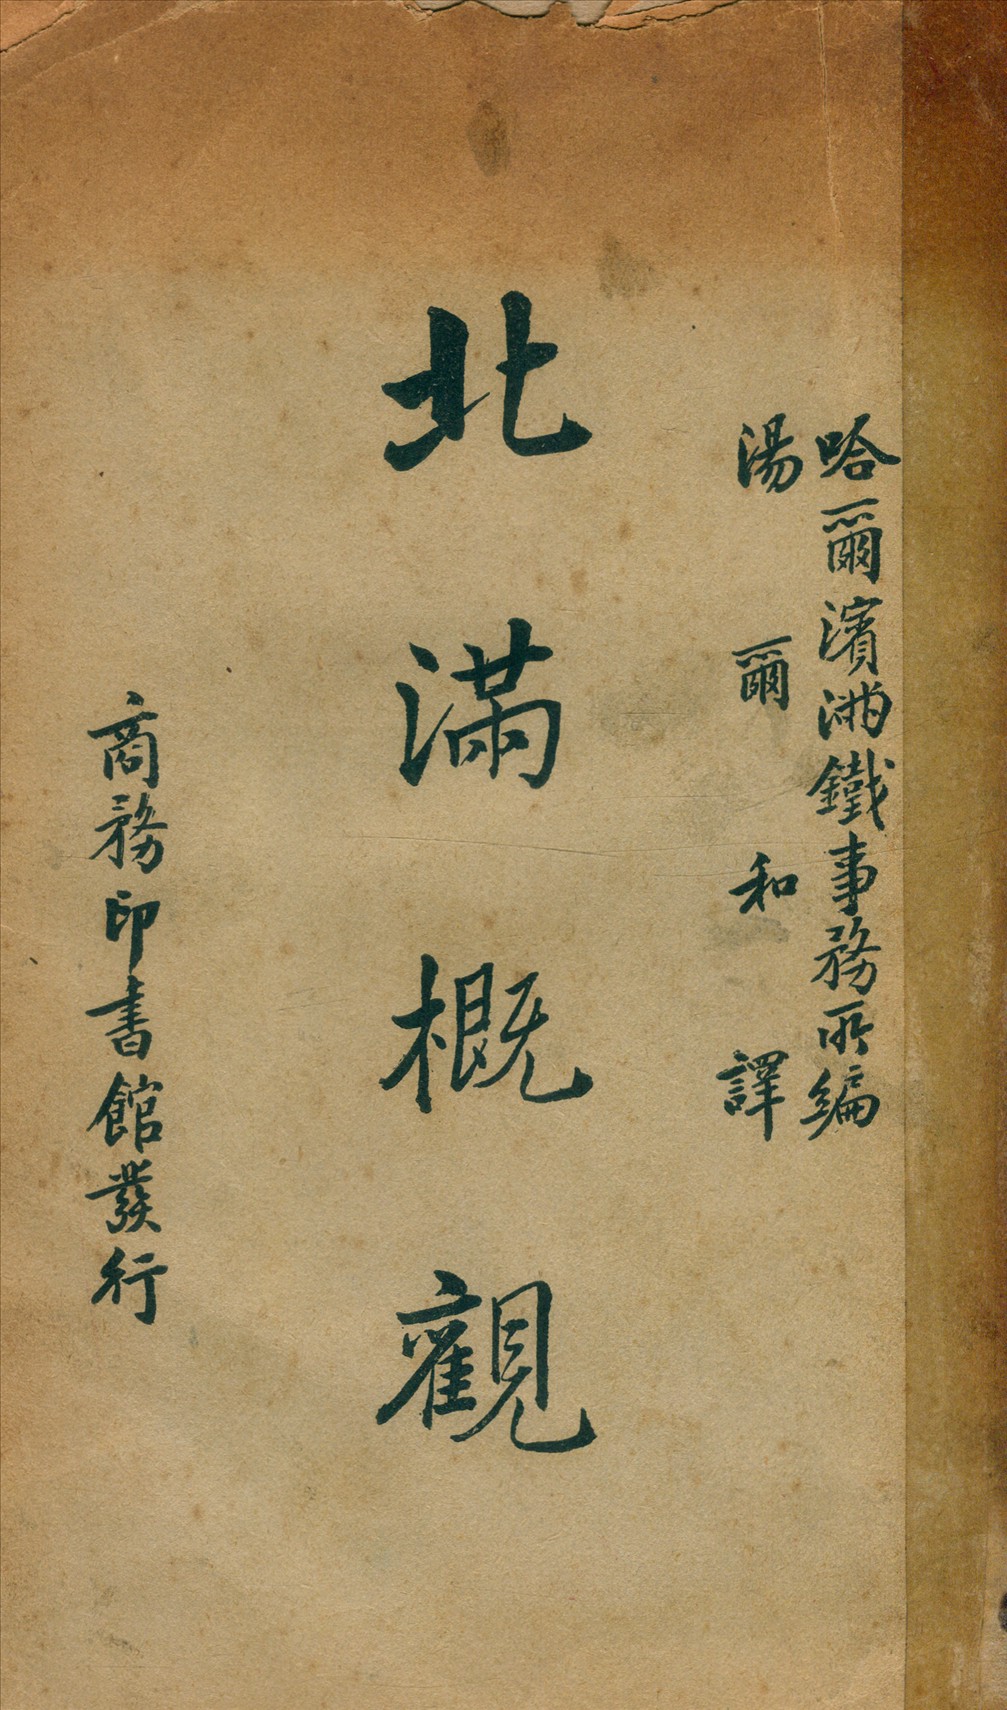 哈爾濱滿鐵事務所編
湯爾和譯
北滿概觀
商務印書館發行